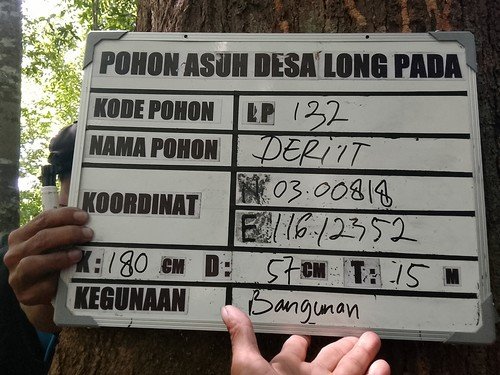 POHON ASUH DESA LONG PADA
KODE POHON LP 132
NAMA POHON DERIIT
KOORDINAT N 03.00818
E 116.12352
K: 180 CM D: 57 CM T: 15 M
KEGUNAAN Bangunan